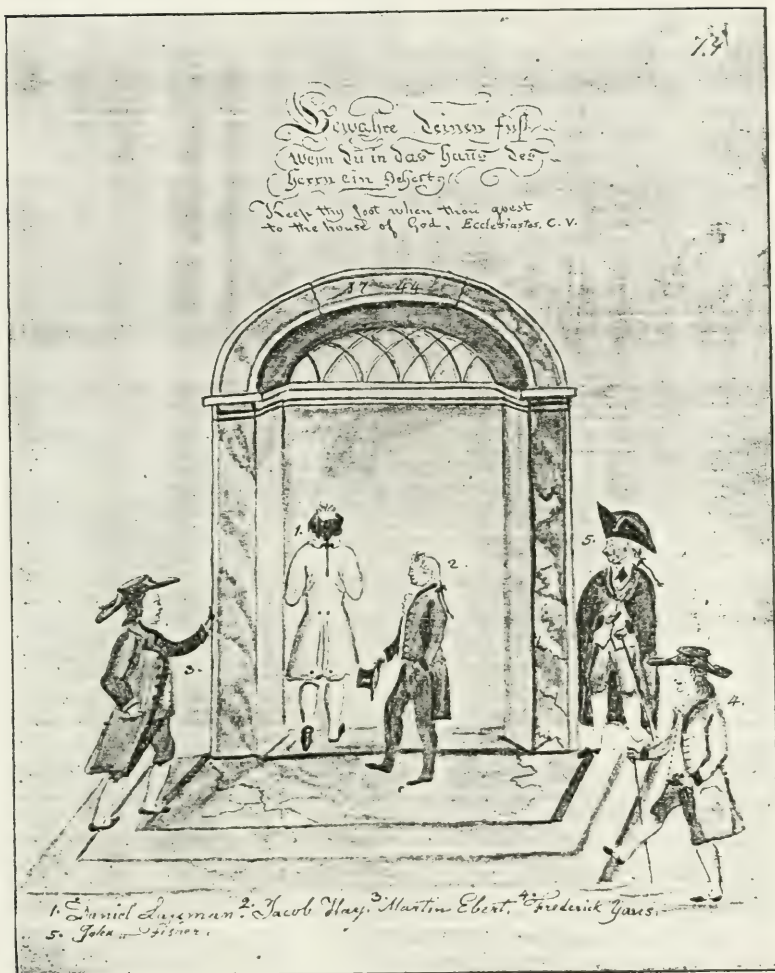 74
Bewahre deinen fuß
Wenn du in das haus des
Herrn ein gehest
Keep thy foot when thou goest
to the house of God. Ecclesiastes. C. V.
1744
1.
2.
5.
3.
4.
1. Daniel 2. Jacob Hay. 3 Martin Ebert. 4. Frederick
5. John Fisher.